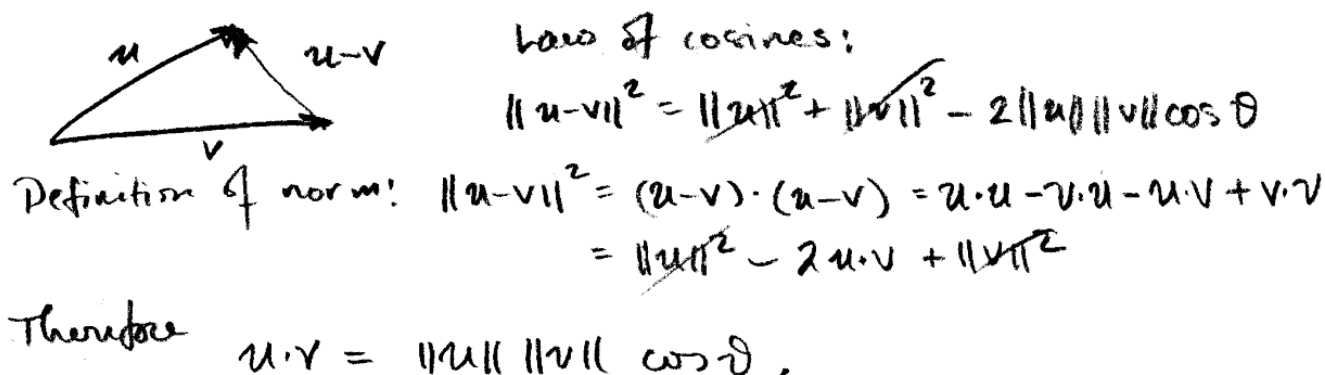 u u-v Law of cosines:
‖u-v‖² = ‖u‖² + ‖v‖² - 2‖u‖‖v‖cos θ
v
Definition of norm: ‖u-v‖² = (u-v)·(u-v) = u·u - v·u - u·v + v·v
= ‖u‖² - 2u·v + ‖v‖²
Therefore u·v = ‖u‖ ‖v‖ cos θ.